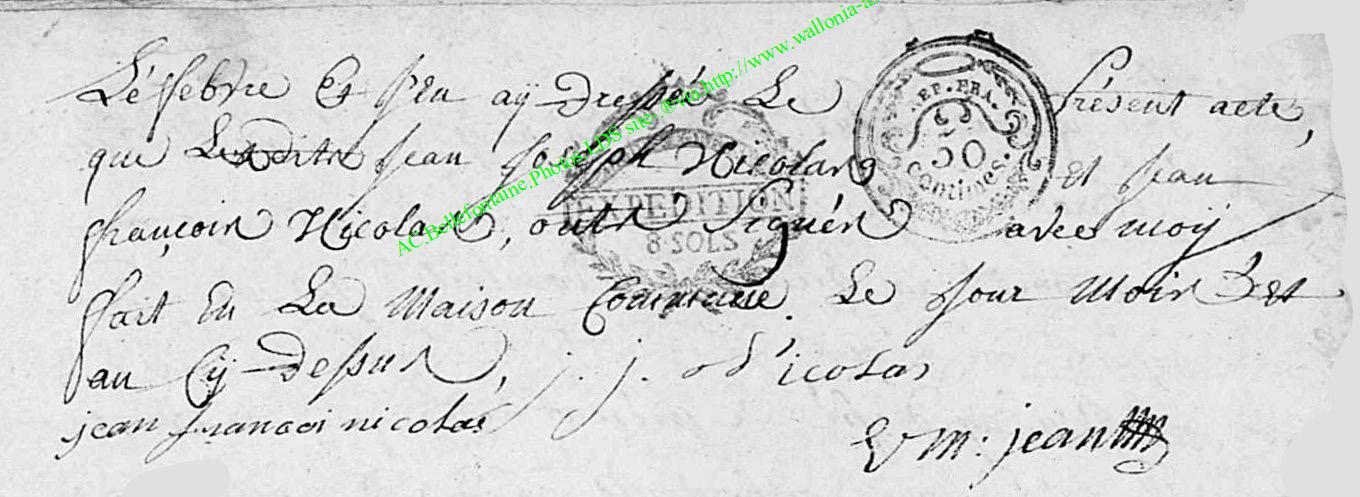 Lésfebvre Et j'En aÿ-Dressés Le Présent acte,
que Lesdits Jean Joseph Nicolas et Jean
françois Nicolas, onts Signés avec moÿ
fait En La Maison Commune. Le Jour Mois Et
an Cÿ-Dessus, j. j. Nicolas
jean francoi nicolas
m: jean
REP. FRA.
50
centimes.
EXPEDITION
8 SOLS
AC.Bellefontaine.Photos LDS site http://www.wallonia-as